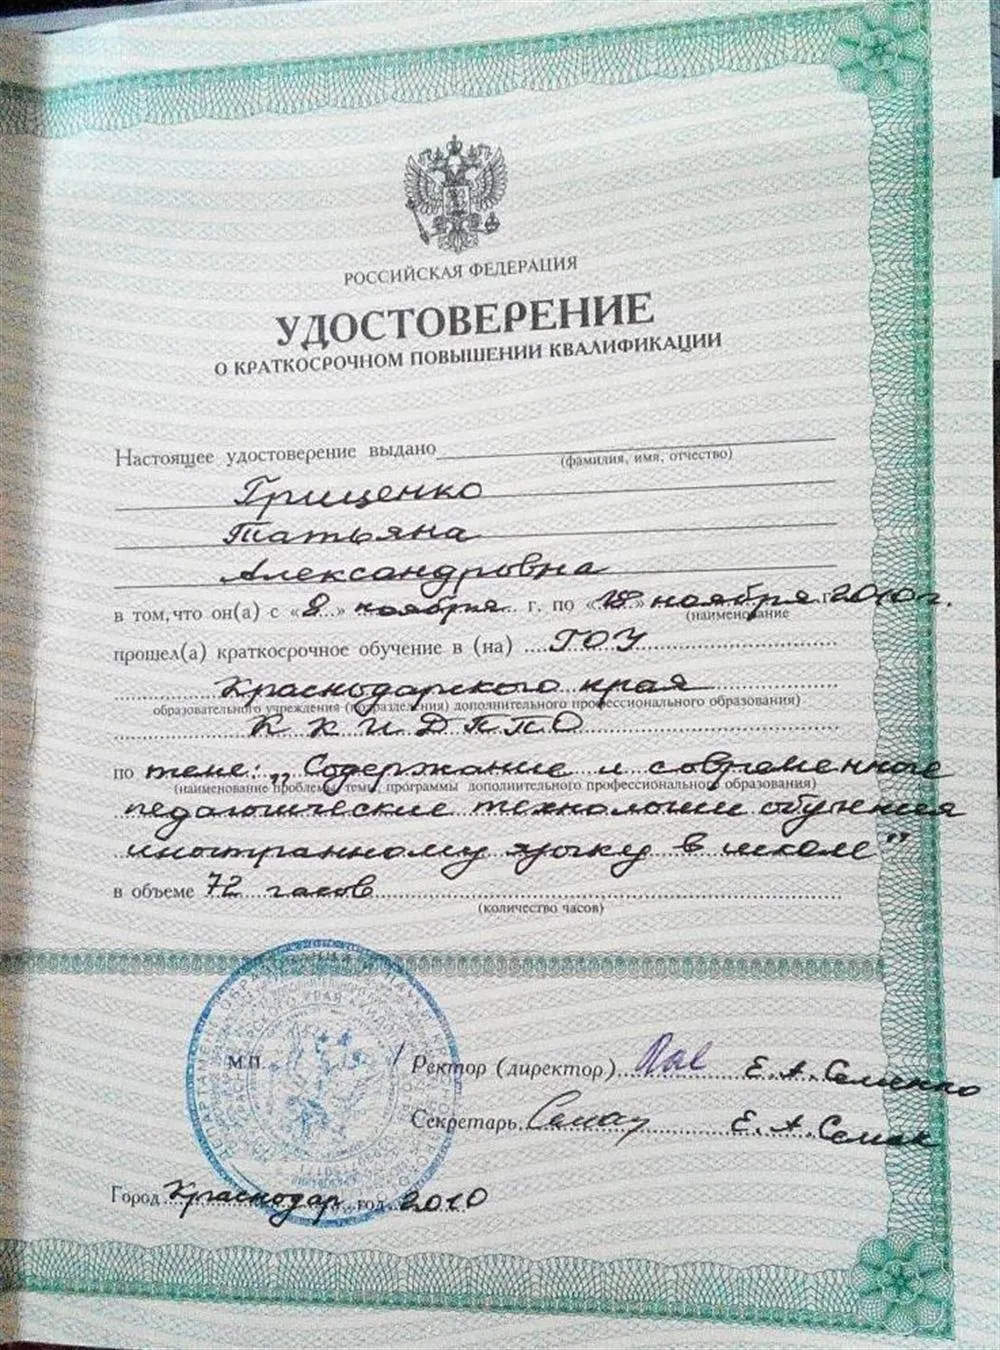 РОССИЙСКАЯ ФЕДЕРАЦИЯ
УДОСТОВЕРЕНИЕ
О КРАТКОСРОЧНОМ ПОВЫШЕНИИ КВАЛИФИКАЦИИ
Настоящее удостоверение выдано
(фамилия, имя, отчество)
Гриценко
Татьяна
Александровна
в том, что он(а) с «8» ноября г. по «18» ноября г. 2010 г.
(наименование
прошел(а) краткосрочное обучение в (на) ГОУ
Краснодарского края
образовательного учреждения (подразделения) дополнительного профессионального образования)
ККИДППО
по теме: „Содержание и современные
(наименование проблемы, темы, программы дополнительного профессионального образования)
педагогические технологии обучения
иностранному языку в школе"
в объеме 72 часов
(количество часов)
М.П.
Ректор (директор) Е. А. Семенко
Секретарь Е. А. Семак
Город Краснодар год 2010